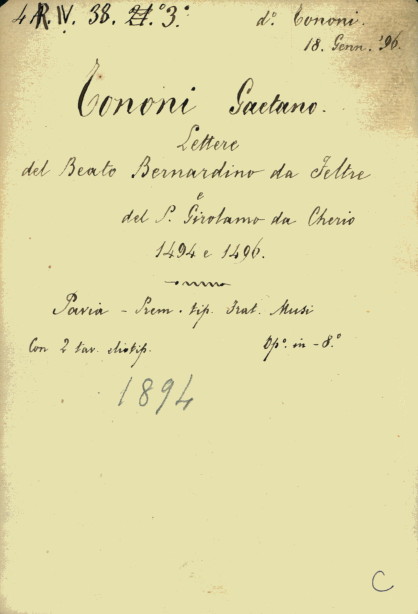 4 R. IV. 38. 21.° 3.°
d.° Tononi.
18. Genn. '96.
Tononi Gaetano.
Lettere
del Beato Bernardino da Feltre
e
del P. Girolamo da Cherio
1494 e 1496.
Pavia - Prem. tip. Frat. Musi
Con 2 tav. eliotip. Op.° in - 8.°
1894
C